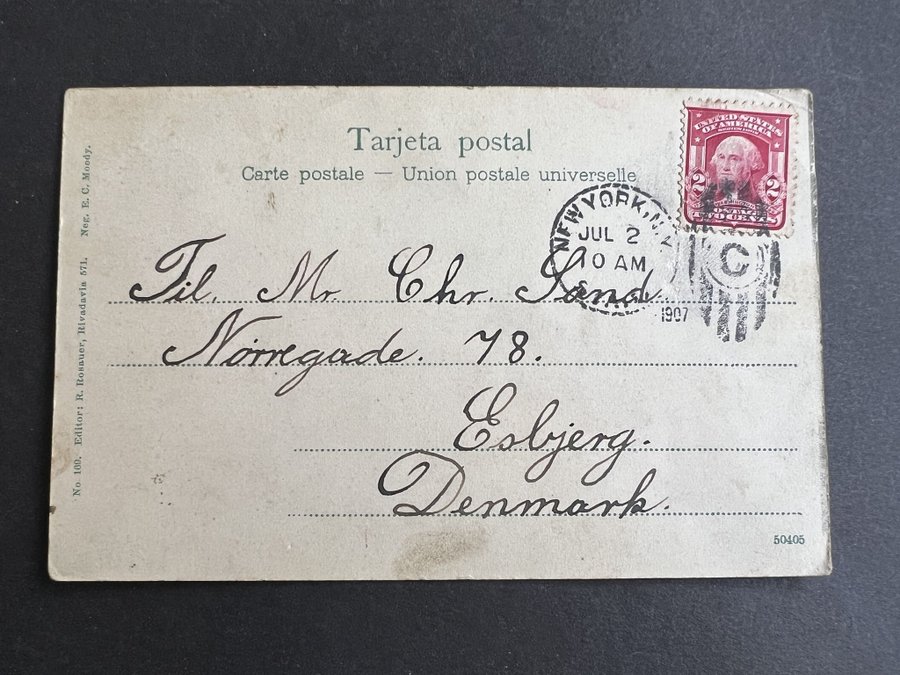 Tarjeta postal
Carte postale — Union postale universelle
UNITED STATES
OF AMERICA
2 2
NEW YORK, N.Y.
JUL 2
10 AM
1907
C
Til. Mr Chr. Sand.
Nørregade. 78.
Esbjerg.
Denmark.
50405
No 169. Editor: R. Rosauer, Rivadavia 571. Neg. E. C. Moody.